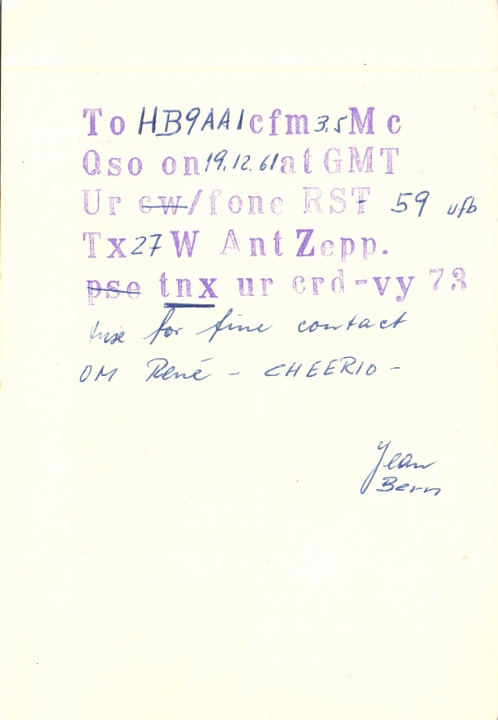 To HB9AAI cfm 3.5 Mc
Qso on 19.12.61 at GMT
Ur cw/fone RST 59 ufb
Tx 27 W Ant Zepp.
pse tnx ur crd-vy 73
for fine contact
OM René - CHEERIO -
Jean
Bern